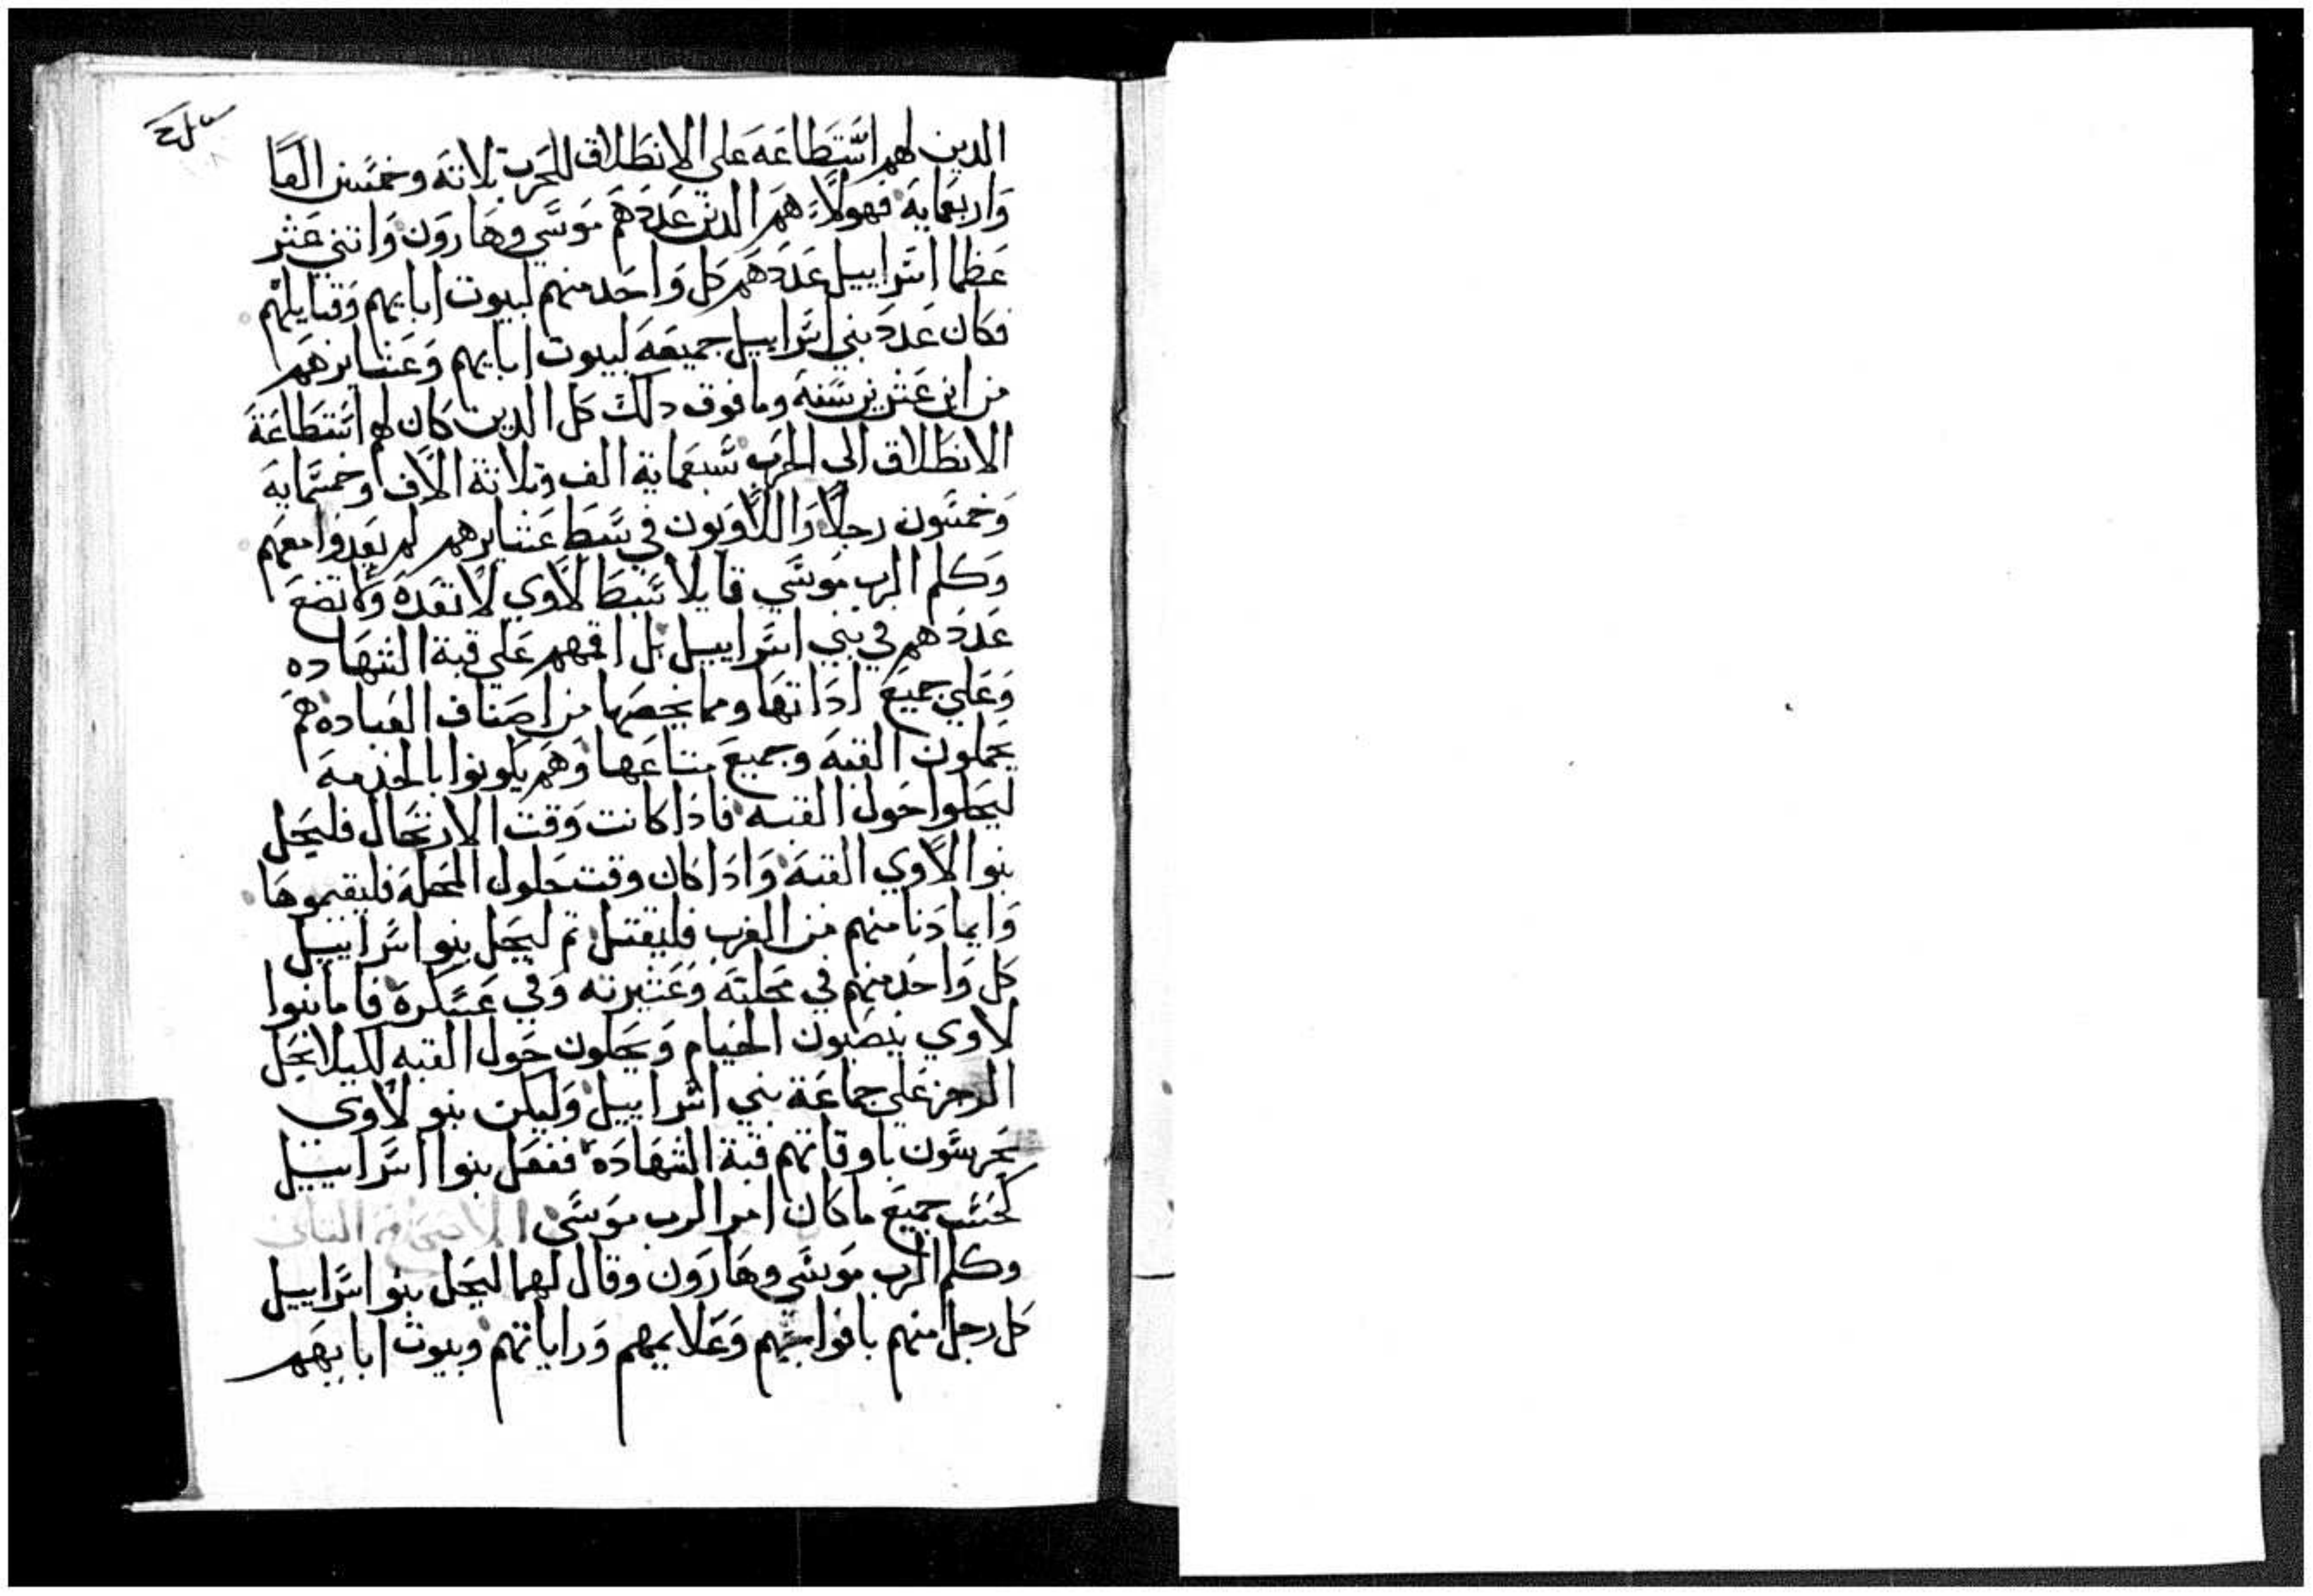 الدين لهم استطاعه على الانطلاق للحرب تلاته وخمسين الفا
واربعمايه فهولاء هم الدين عددهم موسي وهارون واتني عشر
عظما اسراييل عددهم كل واحد منهم لبيوت ابايهم وقبايلهم
فكان عدد بني اسراييل جميعه لبيوت ابايهم وعشايرهم
من ابن عشرين سنه وما فوق دلك كل الدين كان لهم استطاعة
الانطلاق الى الحرب ستمايه الف وتلاتة الاف وخمسمايه
وخمسون رجلا واللاويون في سبط عشايرهم لم يعدوا معهم
وكلم الرب موسي قايلا سبط لاوي لا تعده ولا تضع
عددهم في بني اسراييل بل اقمهم علي قبة الشهاده
وعلي جميع اداتها ومما يخصها من اصناف العباده هم
يحملون القبه وجميع متاعها وهم يكونوا بالخدمه
ليحلوا حول القبه فادا كانت وقت الارتحال فليحل
بنوا لاوي القبه وادا كان وقت حلول المحله فليقيموها
وايما دنا منهم من الغرب فليقتل تم ليحل بنوا اسراييل
كل واحد منهم في محلته وعشيرته وفي عسكره فاما بنوا
لاوي ينصبون الخيام ويحلون حول القبه لكيلا يحل
الرجز علي جماعة بني اسراييل وليكن بنو لاوي
يحرسون باوقاتهم قبة الشهاده ففعل بنوا اسراييل
كحسب جميع ما كان امر الرب موسي الاصحاح التاني
وكلم الرب موسي وهارون وقال لهما ليحل بنوا اسراييل
كل رجل منهم بافواجهم وعلايمهم وراياتهم وبيوت ابايهم